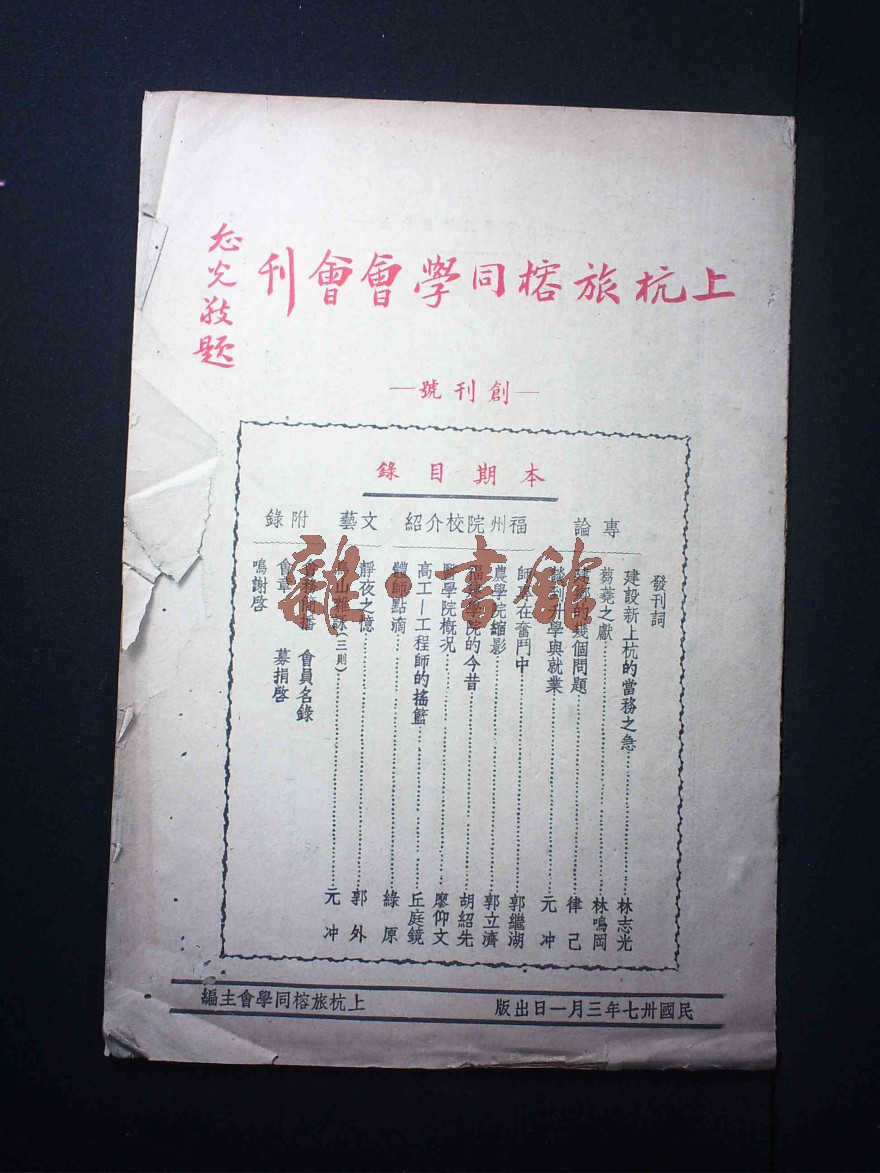 上杭旅榕同學會會刊
志光敬題
—創刊號—
本期目錄
發刊詞
專論
建設新上杭的當務之急 林志光
芻蕘之獻 林鳴岡
的幾個問題 律己
升學與就業 元冲
福州院校介紹
師專在奮鬥中 郭繼湖
農學院縮影 郭立濟
福建學院的今昔 胡紹先
醫學院概况 廖仰文
高工—工程師的搖籃 丘庭鏡
體師點滴 綠原
文藝
靜夜之憶 郭外
烏山雜詠(三則) 元冲
附錄
會務簡播 會員名錄
會章 募捐啓
鳴謝啓
民國卅七年三月一日出版
上杭旅榕同學會主編
雜·書館